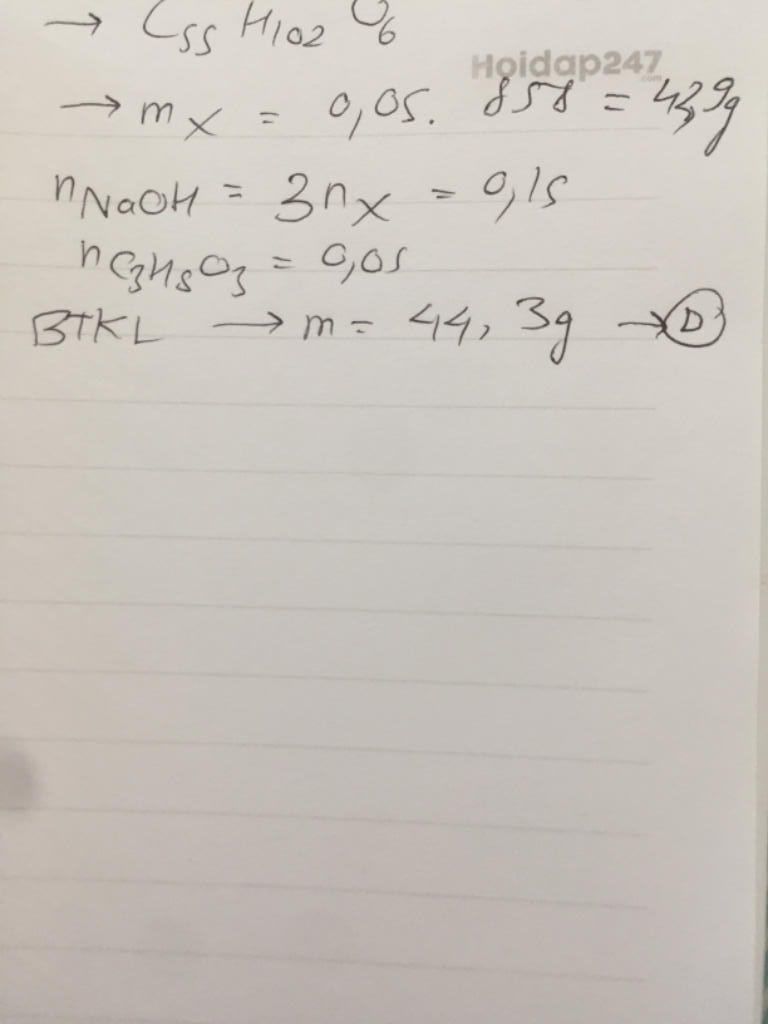 → C55 H102 O6
Hoidap247
.com
→ mX = 0,05. 858 = 42,9g
nNaOH = 3nX = 0,15
nC3H8O3 = 0,05
BTKL → m = 44,3g → D